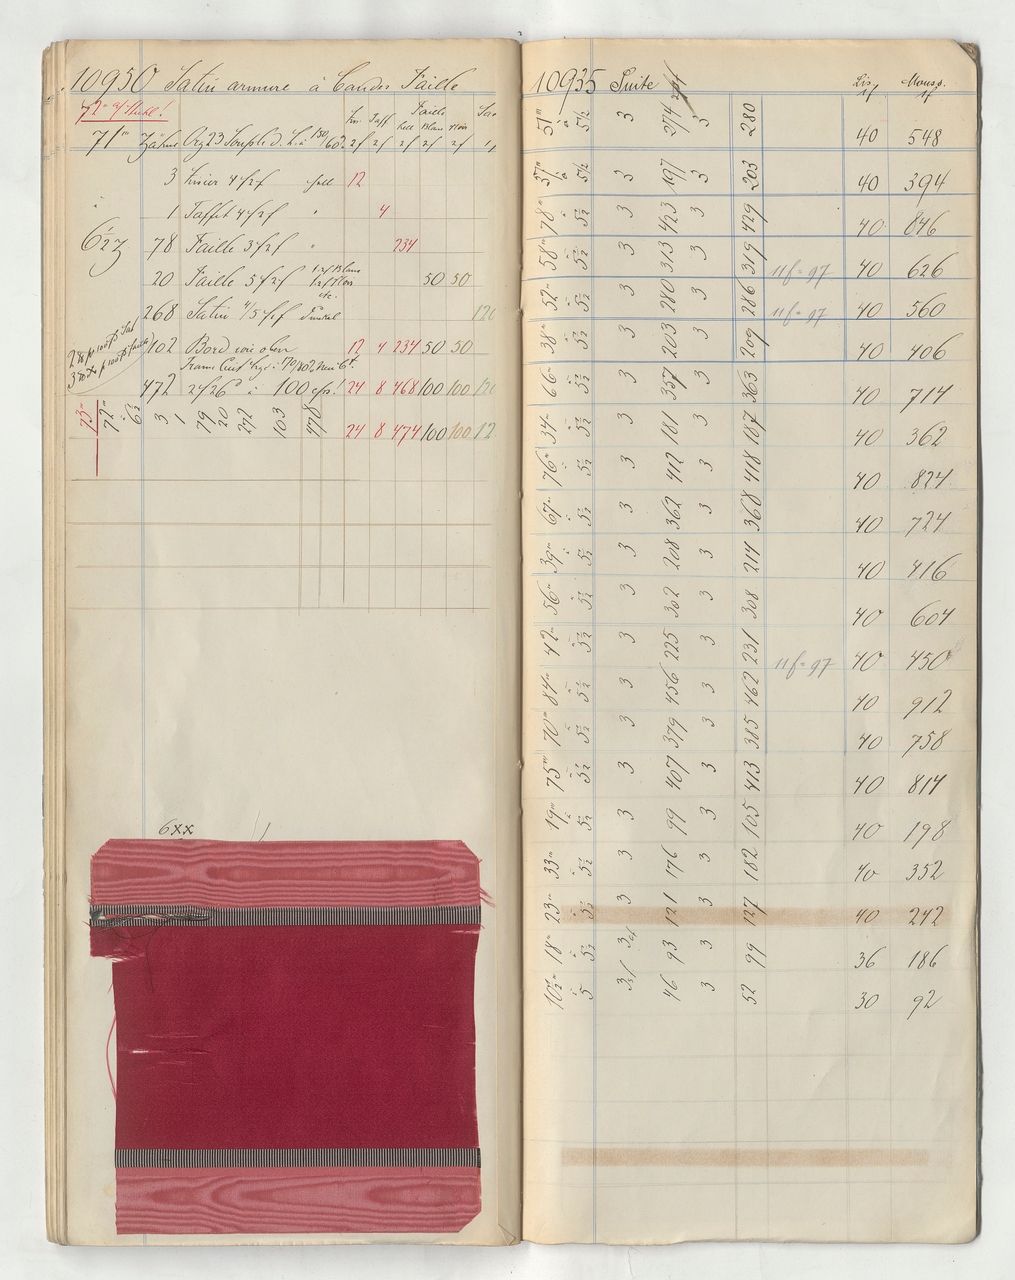 10950 Satin armure à bandes Faille
72''' a/Stuhl!
Faille
Taff
hell Blanc Noir
71''' Zähne Org 23 Souple 2f 2f 2f 2f 2f
3 Lisier 4f2f hell 12
1 Taffet 4f2f " 4
6½ 78 Faille 3f2f " 234
20 Faille 5f2f 50 50
268 Satin 4/5f2f Dunkel 120
2 % p 100 Sat
102 Bord wie oben 12 4 234 50 50
472 2f26 à 100 cps! 24 8 468 100 100 120
73''' 72''' 6½ 3 1 79 20 272 103 478 24 8 474 100 100 12
6xx
10935 Suite
Lis. Mouss.
1f 1f
51''' à 5½ 3 274 3 280 40 548
37''' à 5½ 3 197 3 203 40 394
78''' 5½ 3 423 3 429 40 846
58''' 5½ 3 313 3 319 11f=97 40 626
52''' 5½ 3 280 3 286 11f=97 40 560
38''' 5½ 3 203 3 209 40 406
66''' 5½ 3 357 3 363 40 714
34''' 5½ 3 181 3 187 40 362
76''' 5½ 3 412 3 418 40 824
67''' 5½ 3 362 3 368 40 724
39''' 5½ 3 208 3 214 40 416
56''' 5½ 3 302 3 308 40 604
42''' 5½ 3 225 3 231 11f=97 40 450
84''' 5½ 3 456 3 462 40 912
70''' 5½ 3 379 3 385 40 758
75''' 5½ 3 407 3 413 40 814
19''' 5½ 3 99 3 105 40 198
33''' 5½ 3 176 3 182 40 352
23''' 5½ 3 121 3 127 40 242
18''' 5½ 3 93 3 99 36 186
10½''' 5 3 46 3 52 30 92